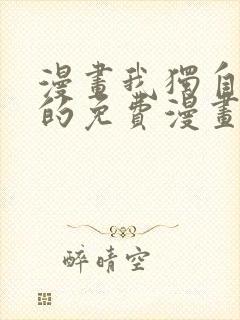 漫畫我獨自
的免費漫畫
醉晴空